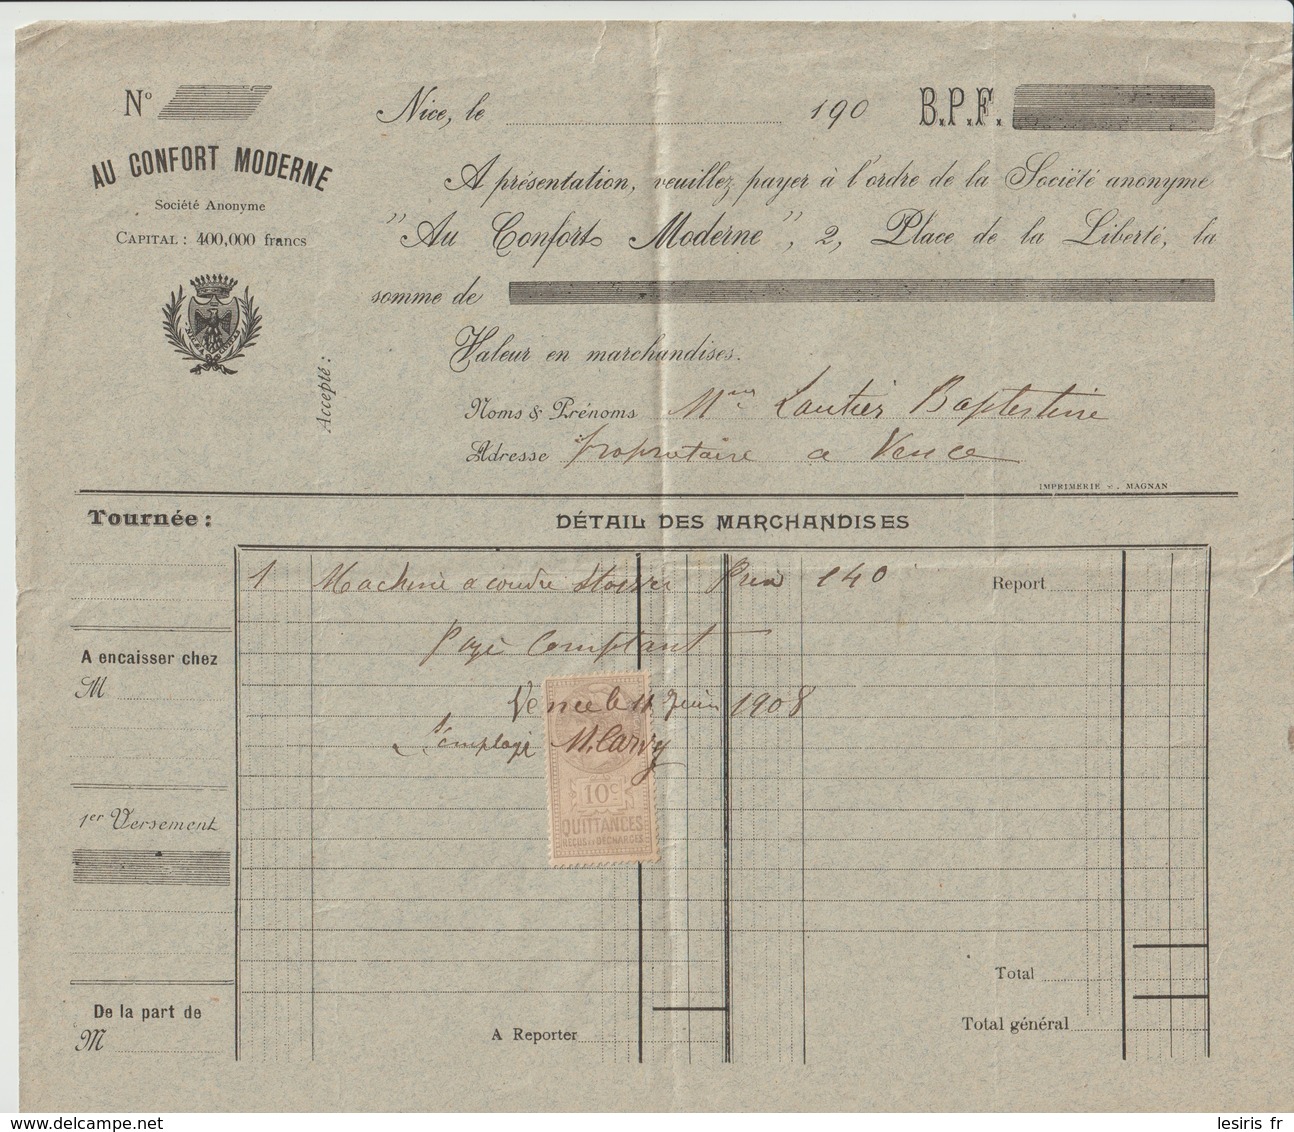 N°
AU CONFORT MODERNE
Société Anonyme
CAPITAL : 400,000 francs
Accepté :
Nice, le 190 B.P.F.
A présentation, veuillez payer à l'ordre de la Société anonyme
"Au Confort Moderne", 2, Place de la Liberté, la
somme de
Valeur en marchandises.
Noms & Prénoms Mme Lautier Baptestine
Adresse propriétaire a Vence
IMPRIMERIE V. MAGNAN
Tournée :
DÉTAIL DES MARCHANDISES
1 Machine a coudre Prix 140
Report
Payé Comptant
A encaisser chez
M
Vence le 11 Juin 1908
L'employé M. Carvy
10c
QUITTANCES
REÇUS ET DÉCHARGES
1er Versement
Total
De la part de
M
A Reporter
Total général
lesiris fr